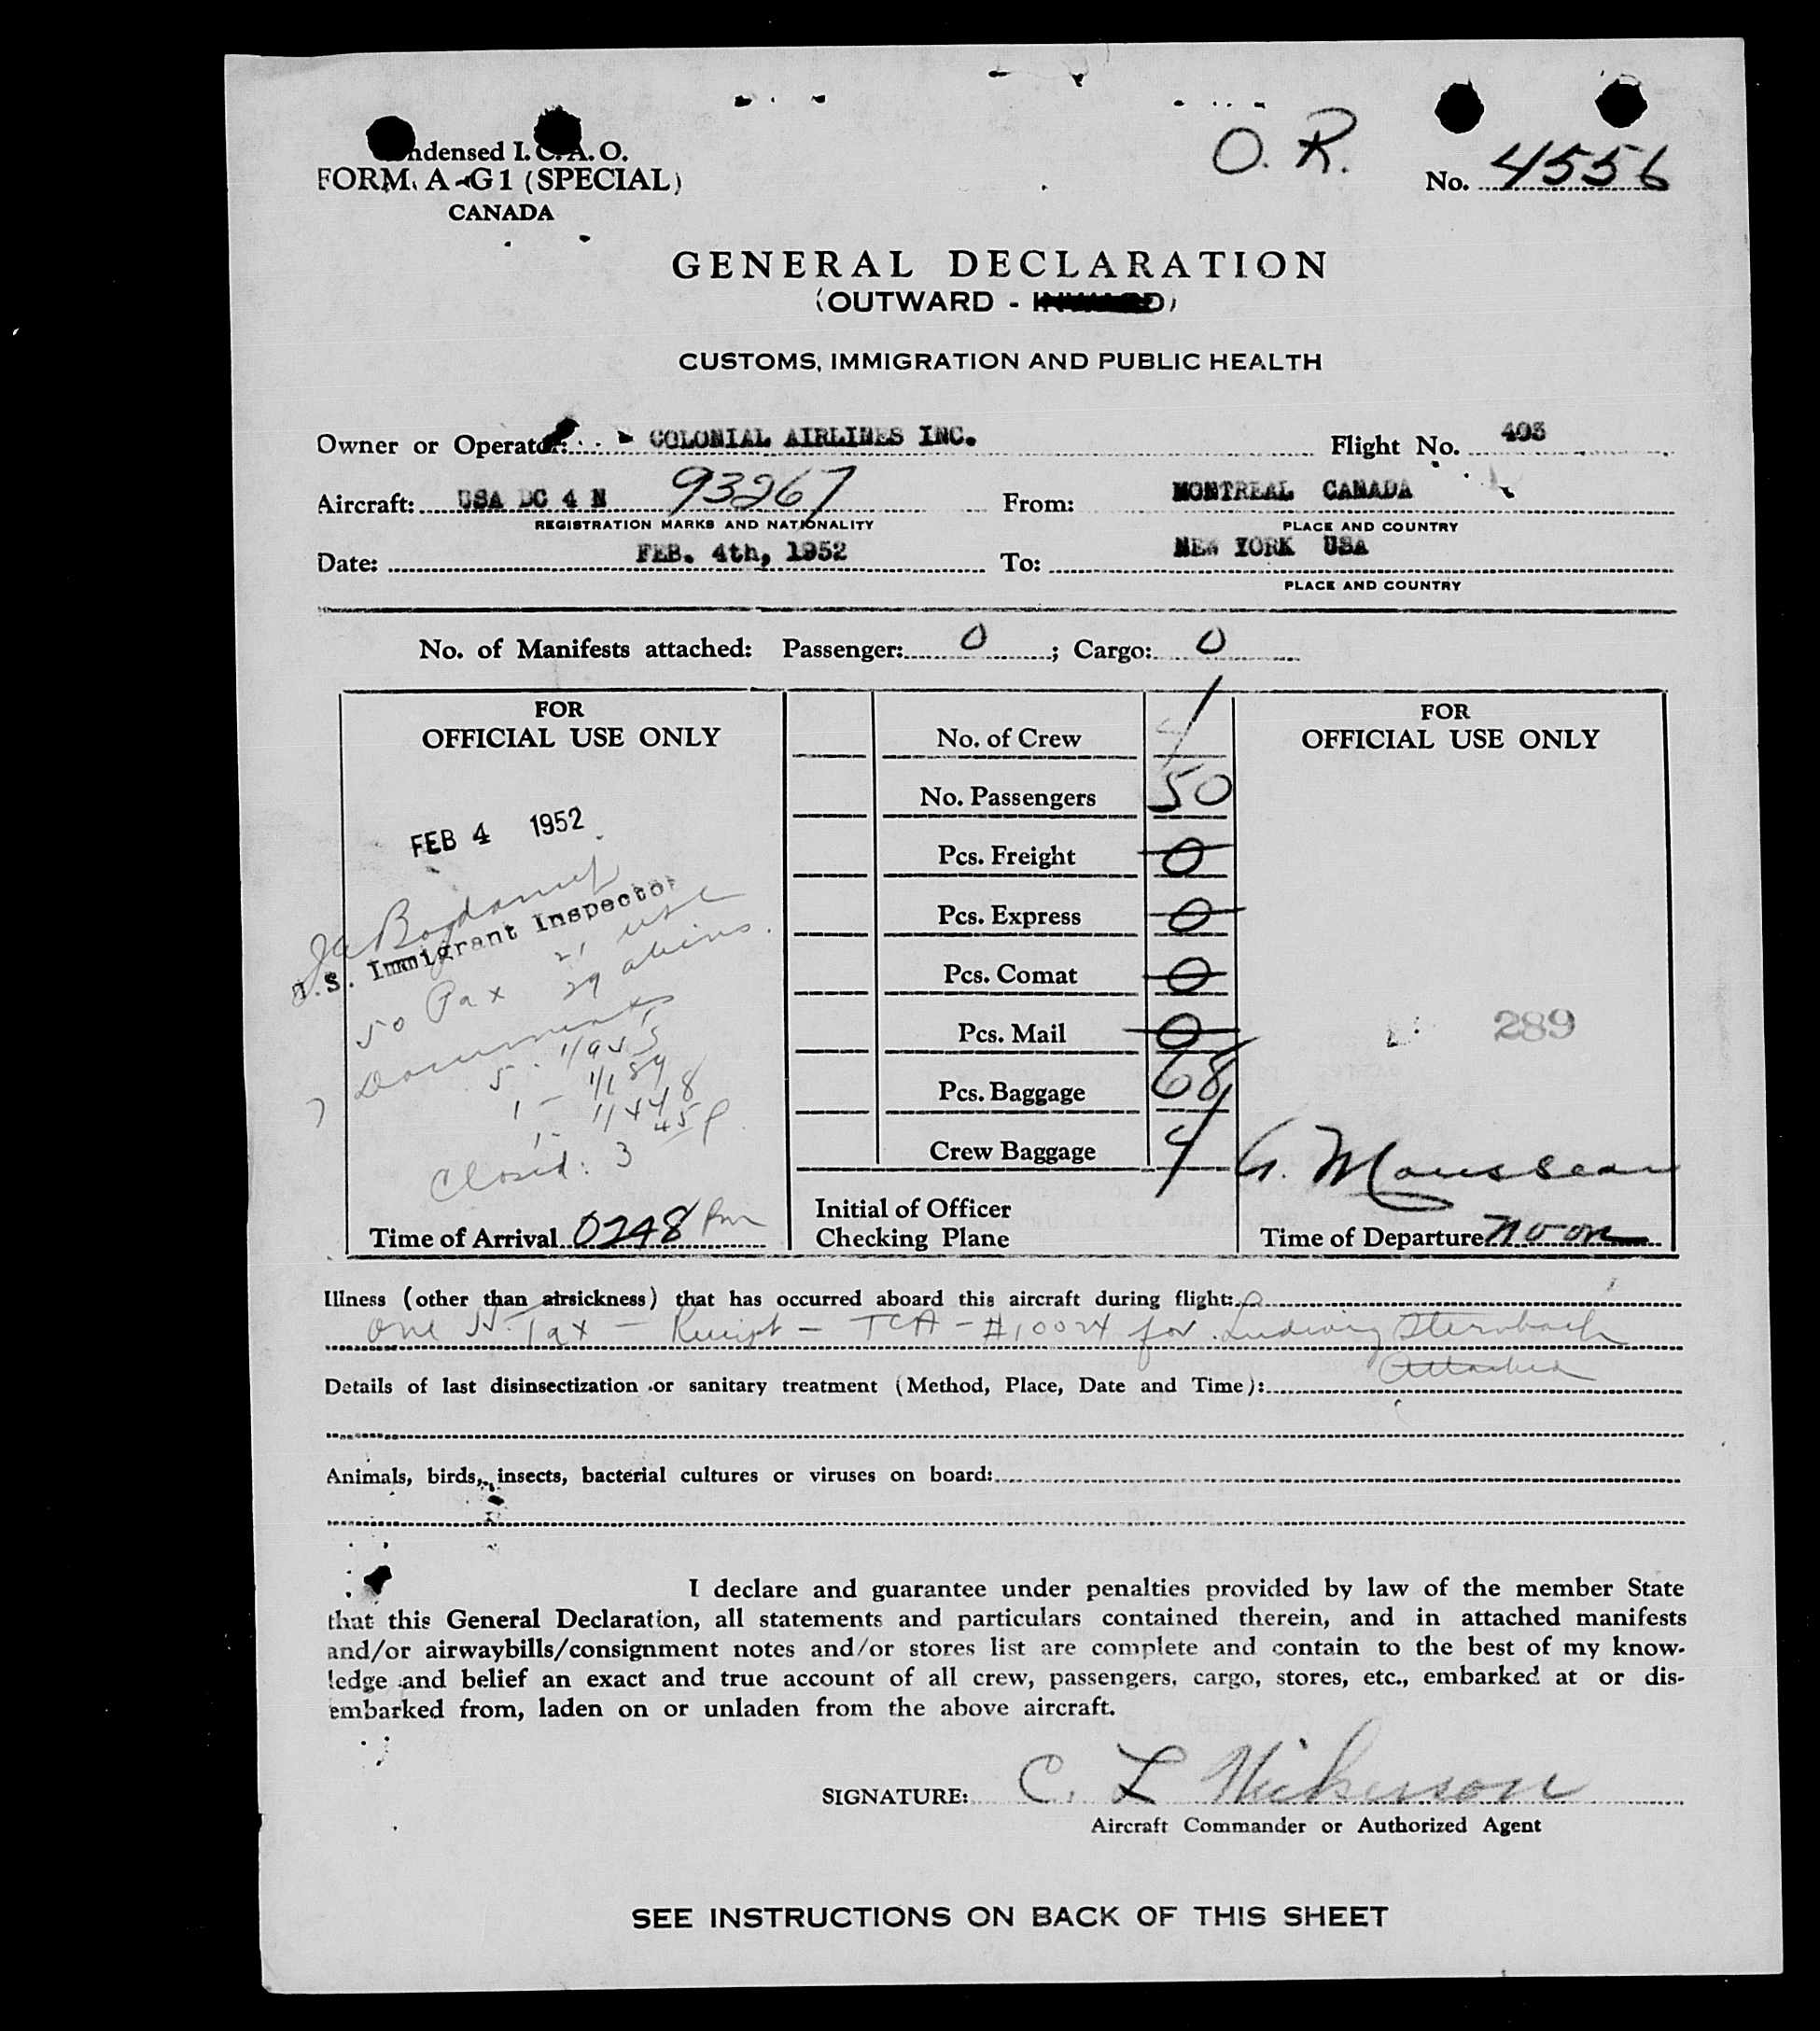 O. R.
ndensed I. C. A. O.
FORM. A-G1 (SPECIAL)
No. 4556
CANADA
GENERAL DECLARATION
(OUTWARD - INWARD)
CUSTOMS, IMMIGRATION AND PUBLIC HEALTH
Owner or Operator: COLONIAL AIRLINES INC. Flight No. 403
Aircraft: USA DC 4 N 93267 From: MONTREAL CANADA
REGISTRATION MARKS AND NATIONALITY PLACE AND COUNTRY
Date: FEB. 4th, 1952 To: NEW YORK USA
PLACE AND COUNTRY
No. of Manifests attached: Passenger: 0 ; Cargo: 0
FOR
OFFICIAL USE ONLY
FEB 4 1952
U.S. Immigrant Inspector
50 Pax 21 usc
29 aliens.
7 Documents
5 -
1 - 
1 - 
Closed: 3 45 P.
Time of Arrival 0248 Pm
No. of Crew 4
No. Passengers 50
Pcs. Freight 0
Pcs. Express 0
Pcs. Comat 0
Pcs. Mail 0
Pcs. Baggage 68
Crew Baggage 4
Initial of Officer
Checking Plane
FOR
OFFICIAL USE ONLY
289
G. Mousseau
Time of Departure noon
Illness (other than airsickness) that has occurred aboard this aircraft during flight:
One H. Tax - Receipt - TCA - #10024 for Ludwig Sternbach
Attached
Details of last disinsectization or sanitary treatment (Method, Place, Date and Time):
Animals, birds, insects, bacterial cultures or viruses on board:
I declare and guarantee under penalties provided by law of the member State
that this General Declaration, all statements and particulars contained therein, and in attached manifests
and/or airwaybills/consignment notes and/or stores list are complete and contain to the best of my know-
ledge and belief an exact and true account of all crew, passengers, cargo, stores, etc., embarked at or dis-
embarked from, laden on or unladen from the above aircraft.
SIGNATURE: C. L Nickerson
Aircraft Commander or Authorized Agent
SEE INSTRUCTIONS ON BACK OF THIS SHEET